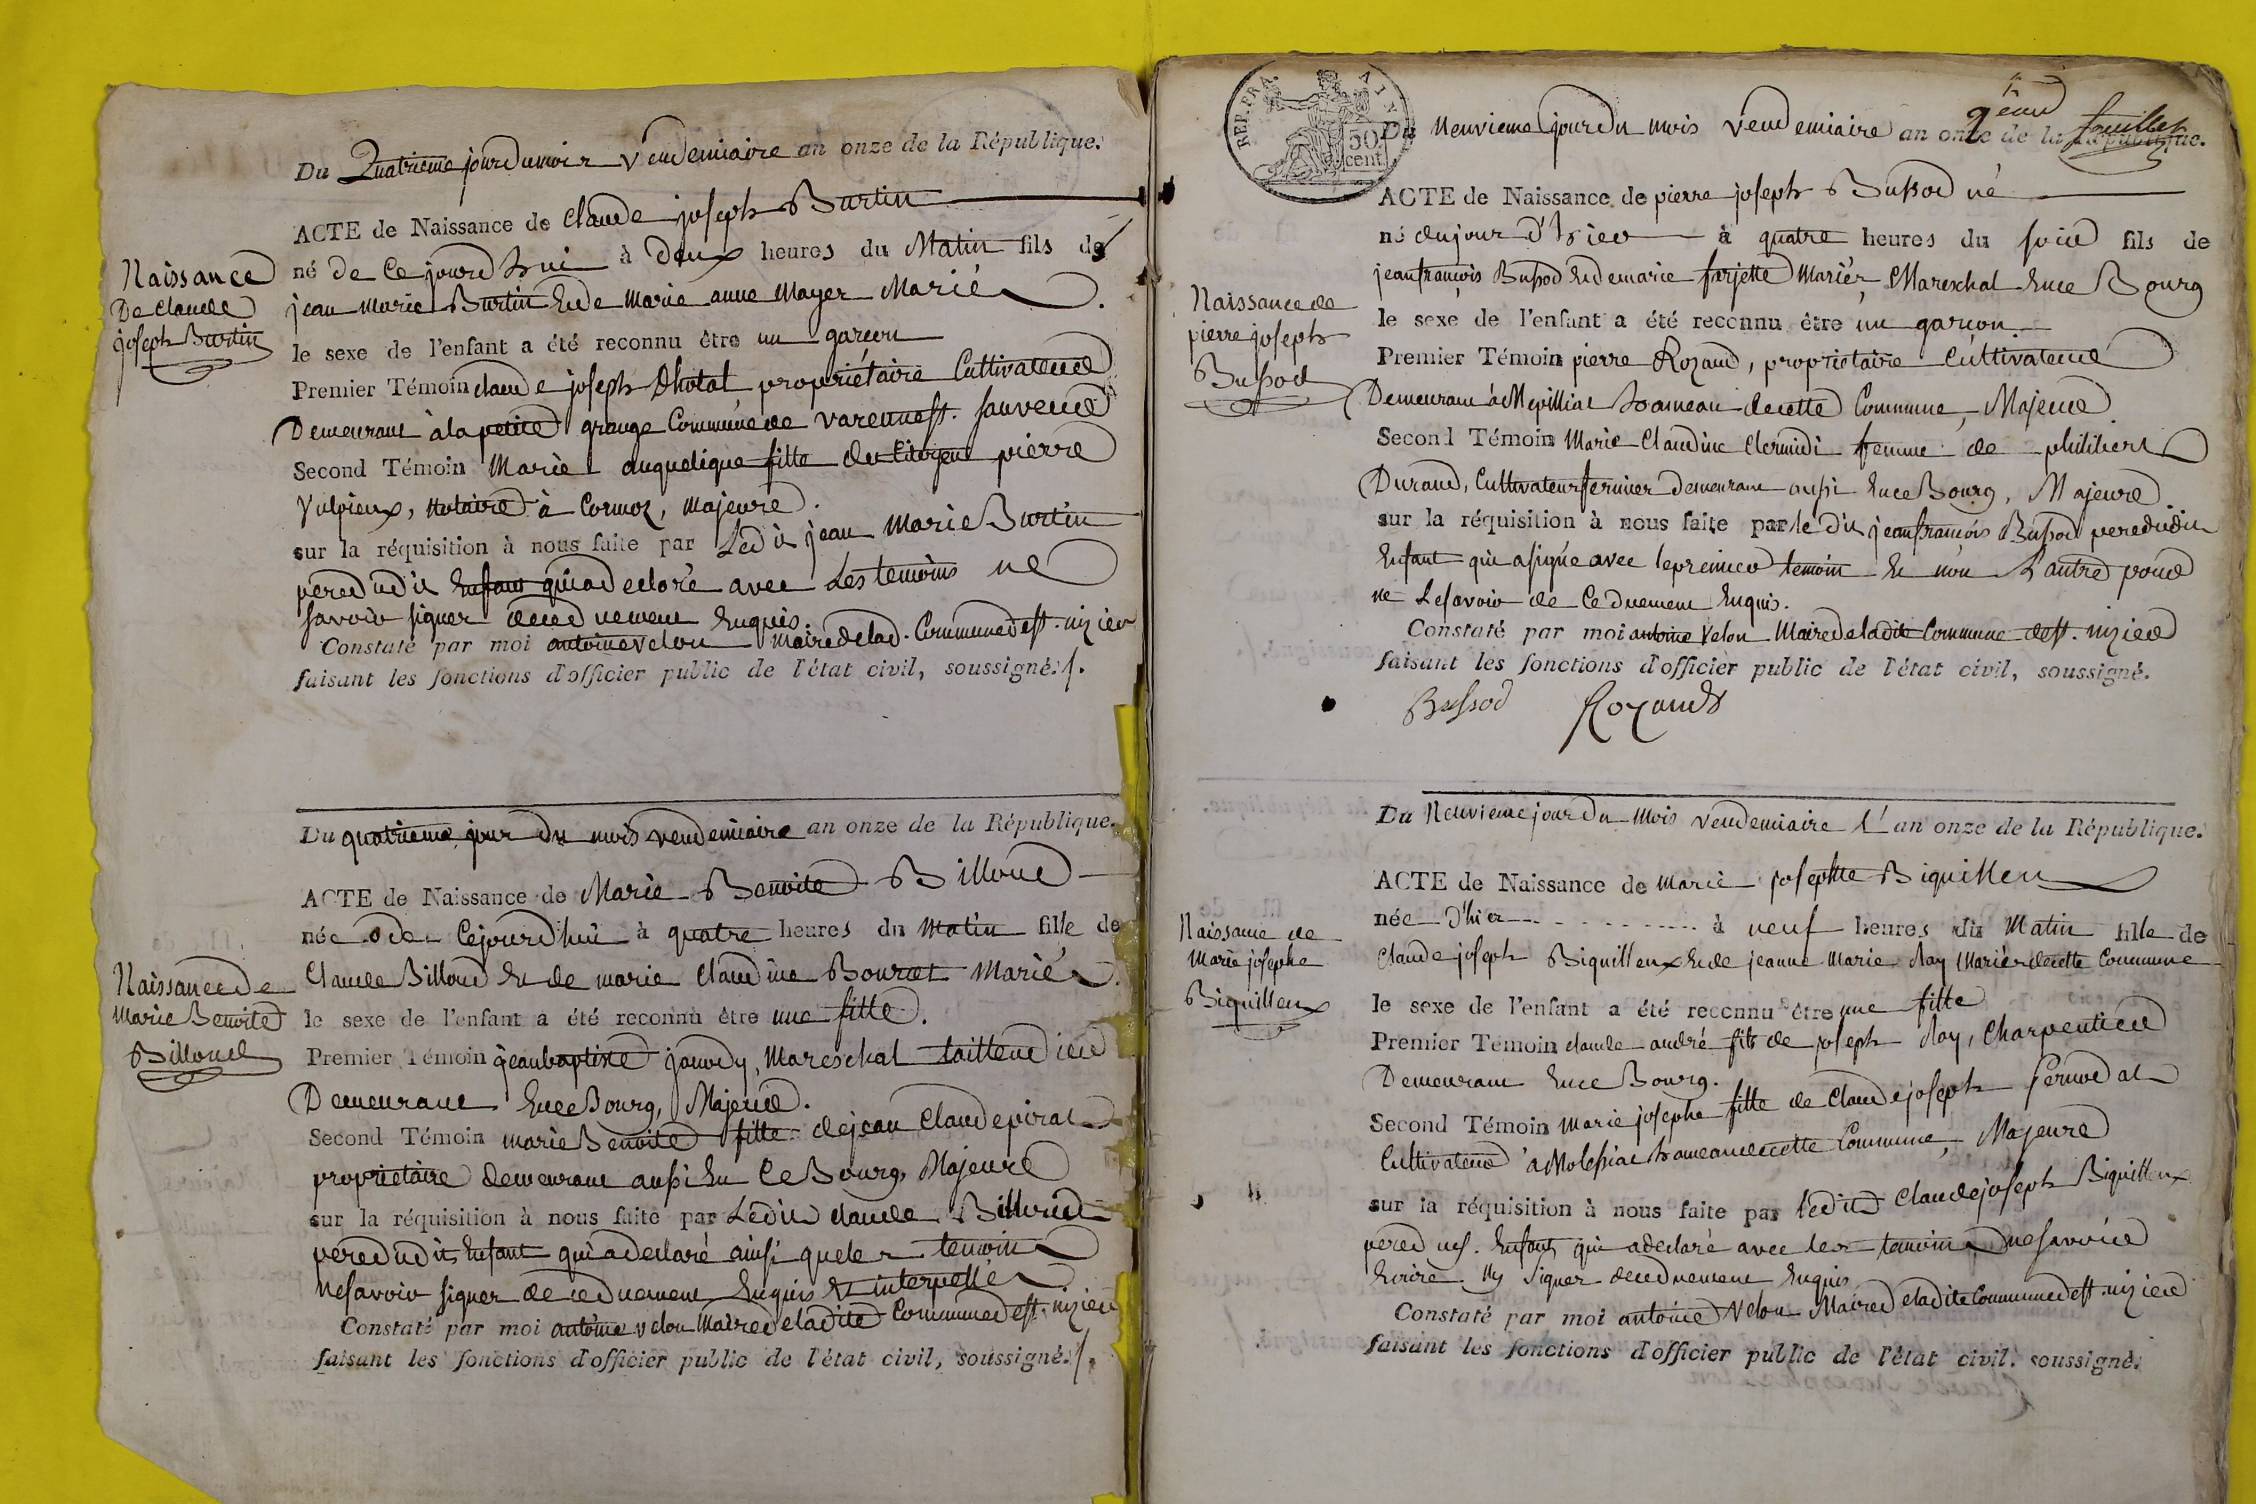 Du Quatrieme jour du mois Vendemiaire an onze de la République.
ACTE de Naissance de Claude joseph Burtin
né de Ce jourd'hui à deux heures du Matin fils de
jean Marie Burtin Et de Marie anne Mayer Mariés
le sexe de l'enfant a été reconnu être un garçon
Premier Témoin claude joseph Chotal propriétaire Cultivateur
Demeurant à la petite grange Commune de Varenne st. Sauveur
Second Témoin Marie angelique fille du Citoyen pierre
Vulpieux, Notaire à Cormoz, Majeure.
sur la réquisition à nous faite par Ledit jean Marie Burtin
pere dudit Enfant qui a declaré avec Les temoins ne
savoir signer de ce duement Enquis.
Constaté par moi antoine Velon Maire de lad. Commune de st. nizier
faisant les fonctions d'officier public de l'état civil, soussigné./.
Naissance
De Claude
joseph Burtin
Du quatrieme jour du mois vendemiaire an onze de la République.
ACTE de Naissance de Marie Benoite Billoud
née de Cejourd'hui à quatre heures du Matin fille de
Claude Billoud Et de marie Claudine Bourcet Mariés
le sexe de l'enfant a été reconnu être une fille.
Premier Témoin jean baptiste jouvdy, Mareschal taillendier
Demeurant En ce Bourg, Majeur.
Second Témoin marie Benoite fille de jean Claude pirat
propriétaire demeurant aussi En Ce Bourg, Majeure
sur la réquisition à nous faite par Ledit claude Billoud
pere dudit Enfant qui a declaré ainsi que les temoins
ne savoir signer de ce duement Enquis Et interpellés
Constaté par moi antoine velon Maire de ladite Commune de st. nizier
faisant les fonctions d'officier public de l'état civil, soussigné./.
Naissance De
Marie Benoite
Billoud
REP. FRA.
50
cent.
2 feuillet
Du Neuvieme jour du mois Vendemiaire an onze de la République.
ACTE de Naissance de pierre joseph Bussod né
né du jour d'hier à quatre heures du soir fils de
jean françois Bussod Et de marie farjette Mariés, Mareschal En ce Bourg
le sexe de l'enfant a été reconnu être un garçon
Premier Témoin pierre Rozand, propriétaire Cultivateur
Demeurant à Mepilliat hameau de cette Commune, Majeur
Second Témoin Marie Claudine Clermidi femme de philibert
Durand, Cultivateur fermier demeurant aussi En ce Bourg, Majeure
sur la réquisition à nous faite par le dit jean françois Bussod pere dudit
Enfant qui a signé avec le premier temoin Et non L'autre pour
ne Le savoir de Ce duement Enquis.
Constaté par moi antoine Velon Maire de ladite Commune de st. nizier
faisant les fonctions d'officier public de l'état civil, soussigné.
Bussod Rozand
Naissance de
pierre joseph
Bussod
Du Neuvieme jour du Mois Vendemiaire L'an onze de la République.
ACTE de Naissance de Marie josephte Biquilleu
née D'hier à neuf heures du Matin fille de
Claude joseph Biquilleux Et de jeanne Marie Ray Mariés de cette Commune
le sexe de l'enfant a été reconnu être une fille
Premier Témoin claude andré fils de joseph Ray, Charpentier
Demeurant En ce Bourg.
Second Témoin Marie josephe fille de Claude joseph
Cultivateur à Molessiat hameau de cette Commune, Majeure
sur la réquisition à nous faite par ledit Claude joseph Biquilleux
pere dud. Enfant qui a declaré avec les temoins ne savoir
Ecrire Ny signer de ce duement Enquis
Constaté par moi antoine Velon Maire de ladite Commune de st. nizier
faisant les fonctions d'officier public de l'état civil. soussigné.
Naissance de
Marie josephe
Biquilleux